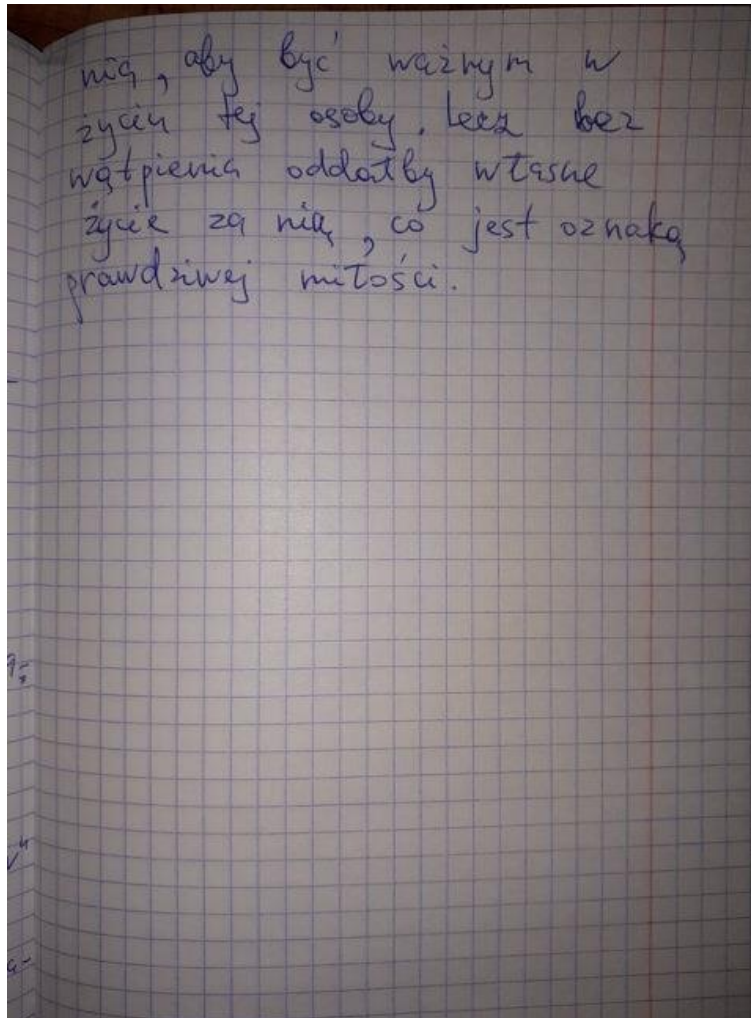 nią, aby być ważnym w
życiu tej osoby. Lecz bez
wątpienia oddałby własne
życie za nią, co jest oznaką
prawdziwej miłości.